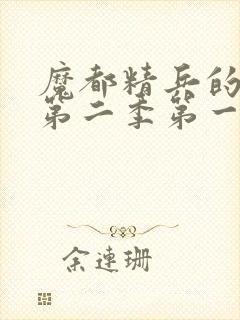 魔都精兵的
第二季第一
余连珊